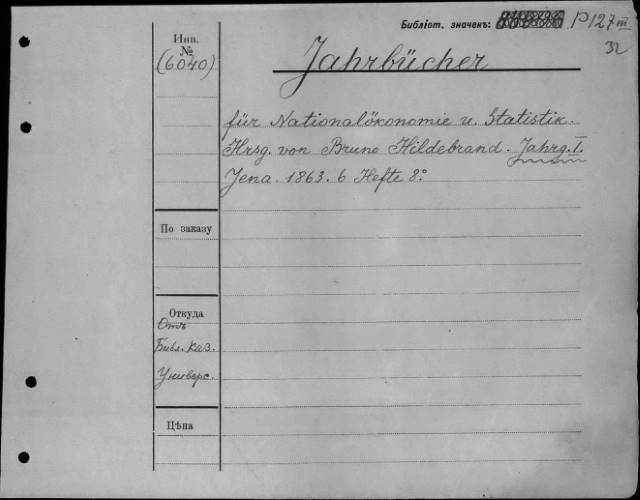 Библіот. значекъ: P127 III
32
Инв.
№
(6040)
Jahrbücher
für Nationalökonomie u. Statistik.
Hrsg. von Bruno Hildebrand. Jahrg. I.
Jena. 1863. 6 Hefte 8º
По заказу
Откуда
Отъ
Библ. Каз.
Универс.
Цѣна